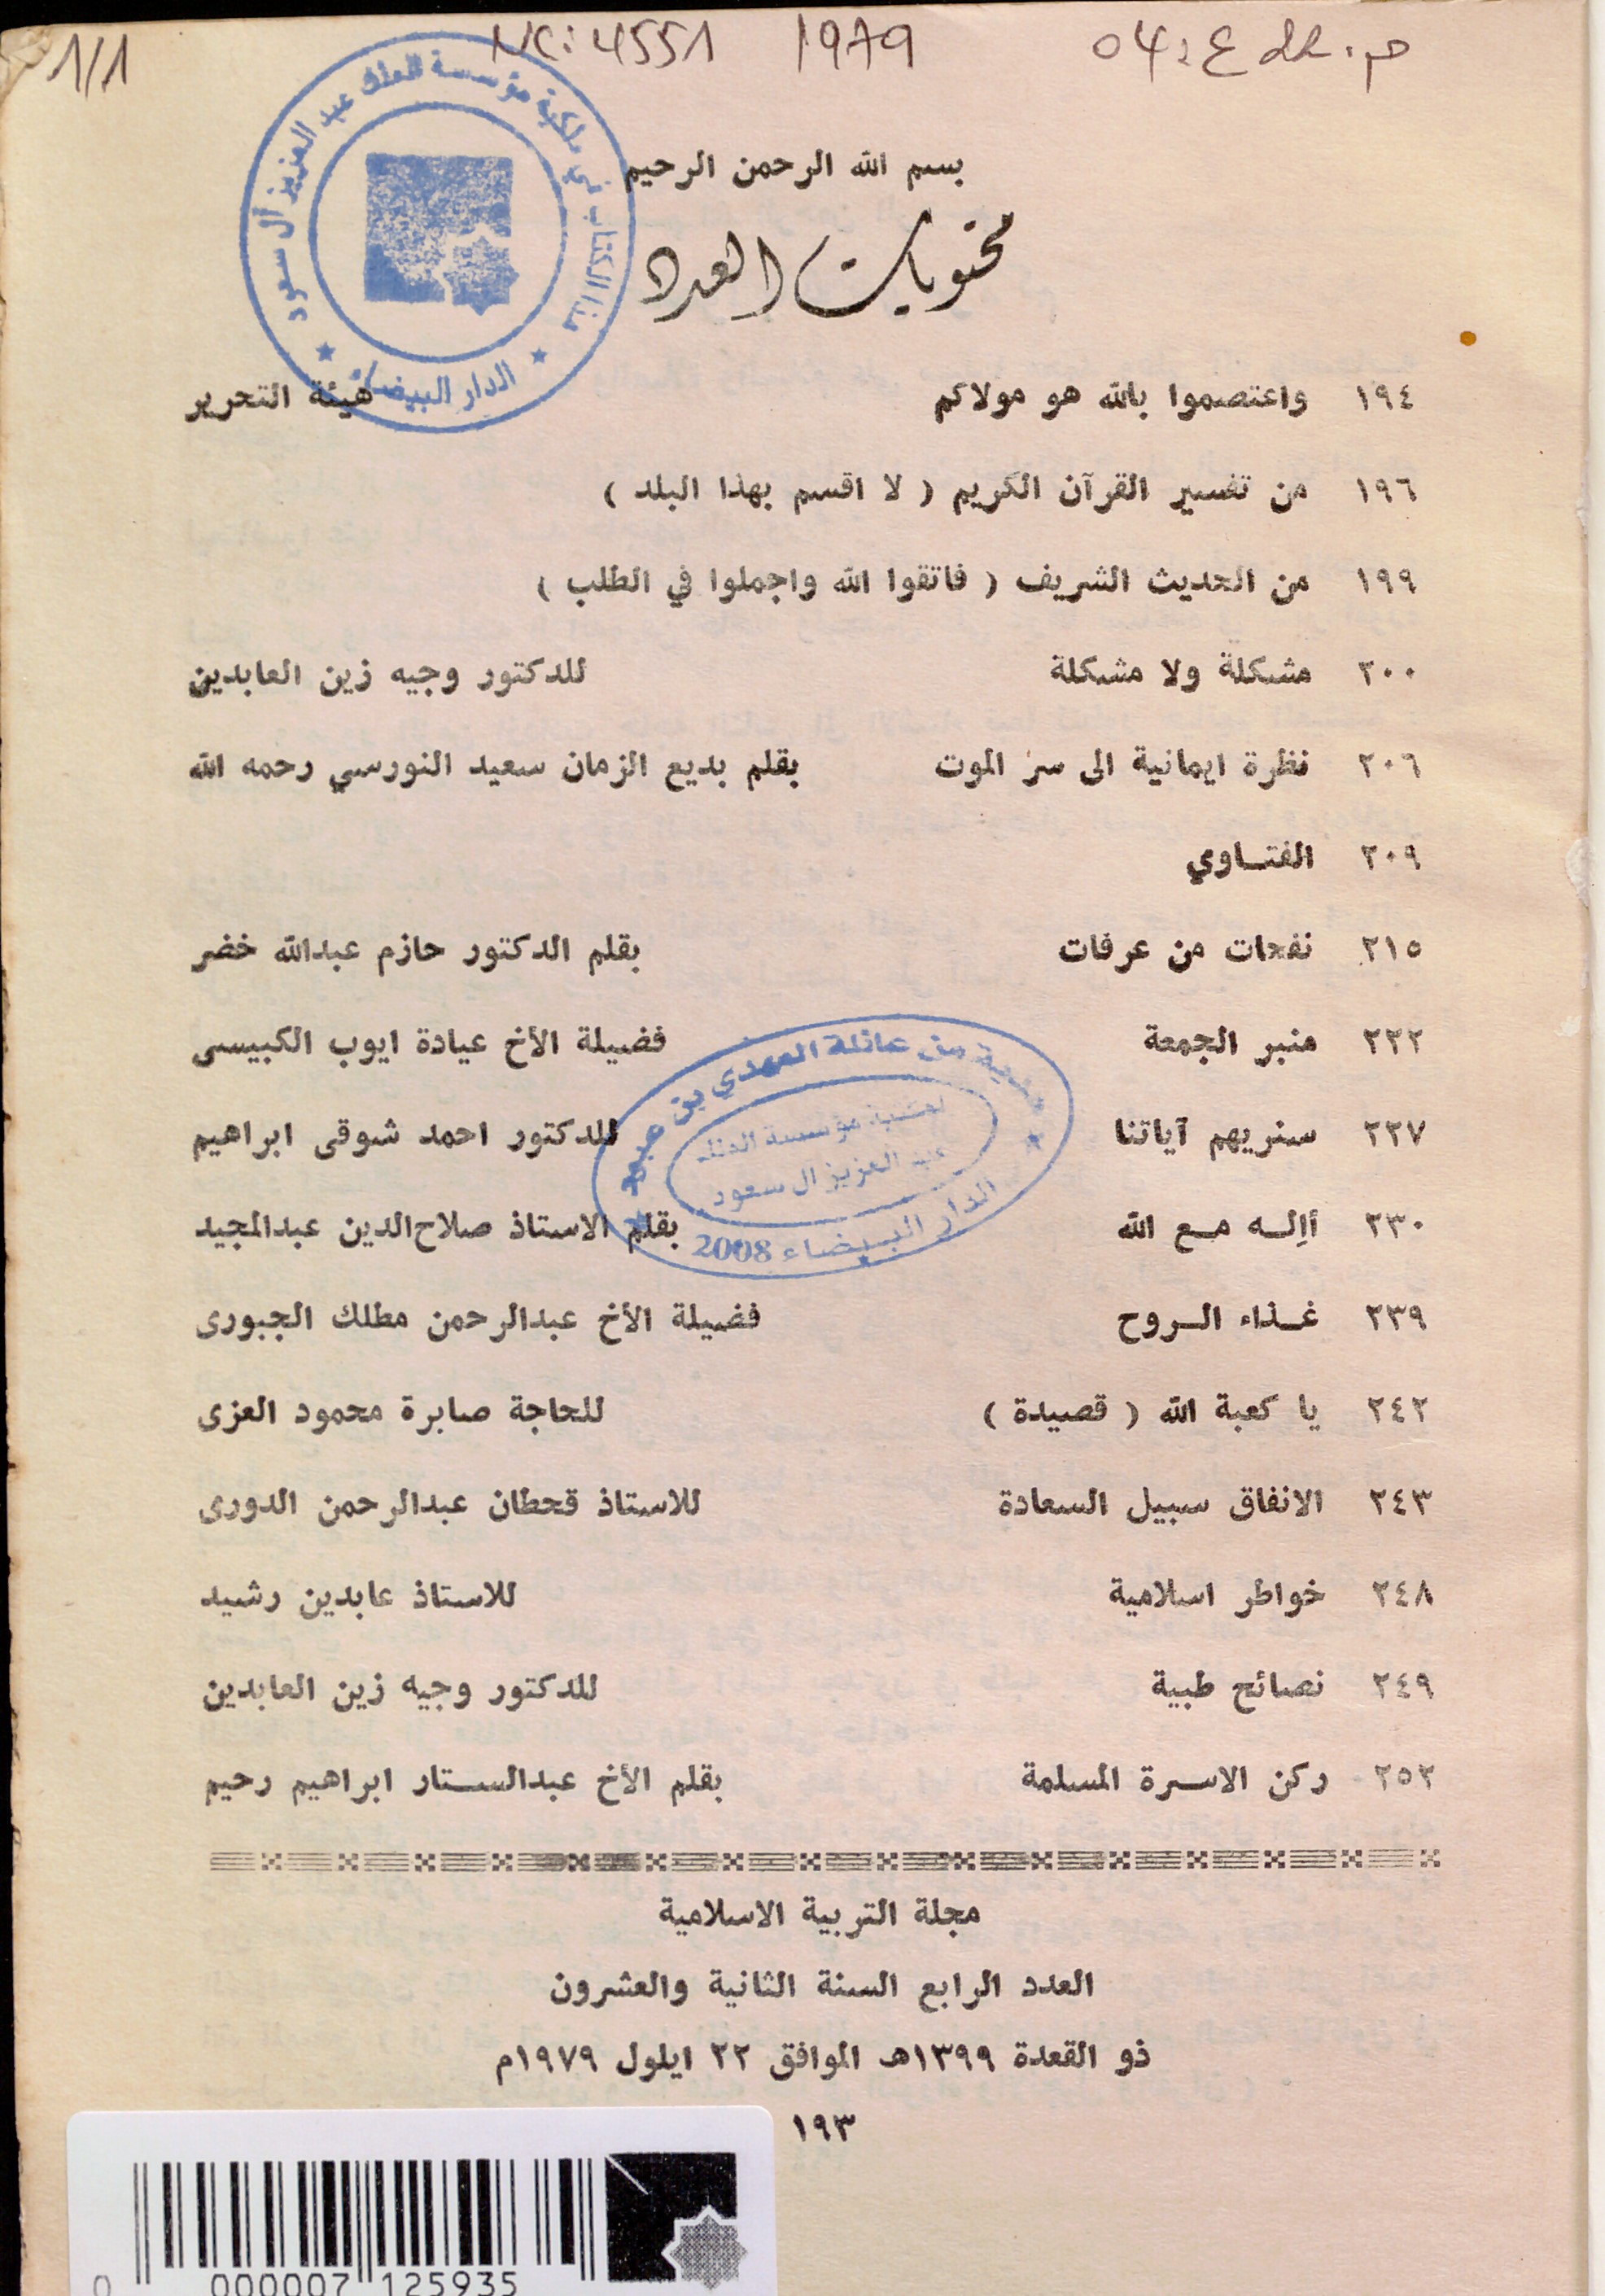 1/1
NC: 4551 1979
بسم الله الرحمن الرحيم
محتويات العدد
١٩٤ واعتصموا بالله هو مولاكم هيئة التحرير
١٩٦ من تفسير القرآن الكريم ( لا اقسم بهذا البلد )
١٩٩ من الحديث الشريف ( فاتقوا الله واجملوا في الطلب )
٢٠٠ مشكلة ولا مشكلة للدكتور وجيه زين العابدين
٢٠٦ نظرة ايمانية الى سر الموت بقلم بديع الزمان سعيد النورسي رحمه الله
٢٠٩ الفتــاوي
٢١٥ نفحات من عرفات بقلم الدكتور حازم عبدالله خضر
٢٢٢ منبر الجمعة فضيلة الأخ عيادة ايوب الكبيسى
٢٢٧ سنريهم آياتنا للدكتور احمد شوقى ابراهيم
٢٣٠ أإلــه مــع الله بقلم الاستاذ صلاح‌الدين عبدالمجيد
٢٣٩ غــذاء الــروح فضيلة الأخ عبدالرحمن مطلك الجبورى
٢٤٢ يا كعبة الله ( قصيدة ) للحاجة صابرة محمود العزى
٢٤٣ الانفاق سبيل السعادة للاستاذ قحطان عبدالرحمن الدورى
٢٤٨ خواطر اسلامية للاستاذ عابدين رشيد
٢٤٩ نصائح طبية للدكتور وجيه زين العابدين
٢٥٢ ركن الاســرة المسلمة بقلم الأخ عبدالســتار ابراهيم رحيم
مجلة التربية الاسلامية
العدد الرابع السنة الثانية والعشرون
ذو القعدة ١٣٩٩هـ الموافق ٢٢ ايلول ١٩٧٩م
١٩٣
هذا الكتاب في ملكية مؤسسة الملك عبد العزيز آل سعود
الدار البيضاء
هدية من عائلة المهدي بن عبود
لمكتبة مؤسسة الملك
عبد العزيز آل سعود
الدار البيضاء 2008
0 000007 125935